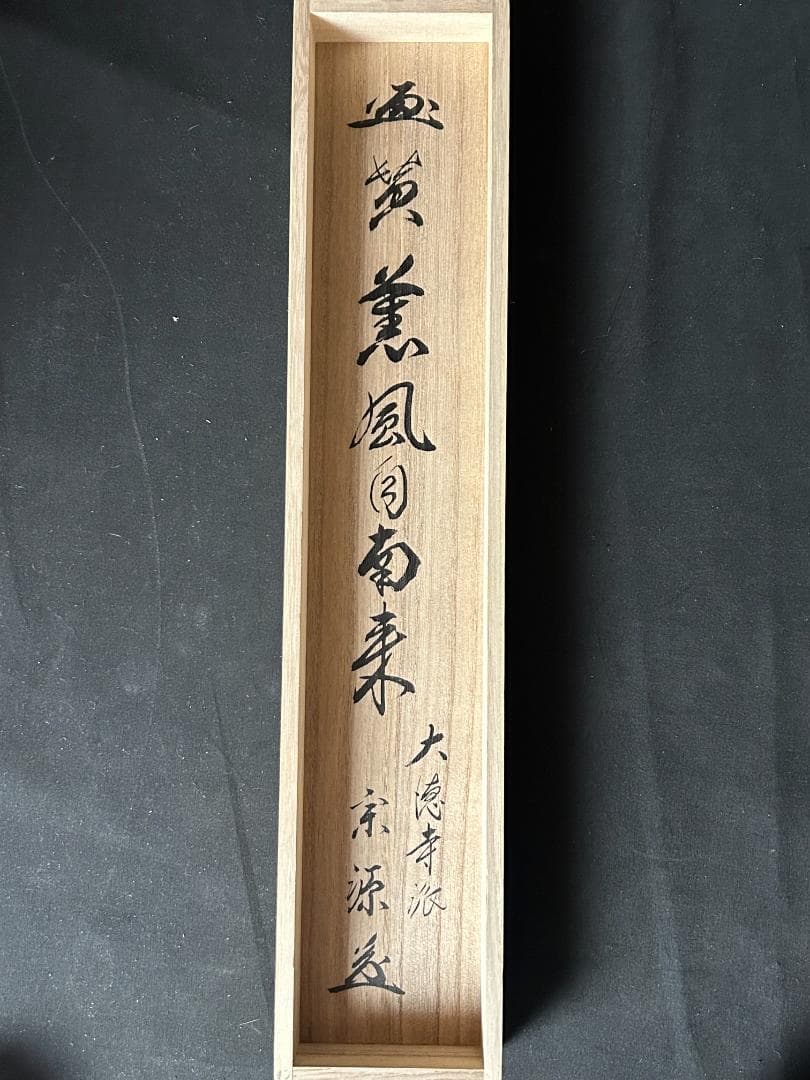 画賛 薫風自南来
大徳寺派
宗源